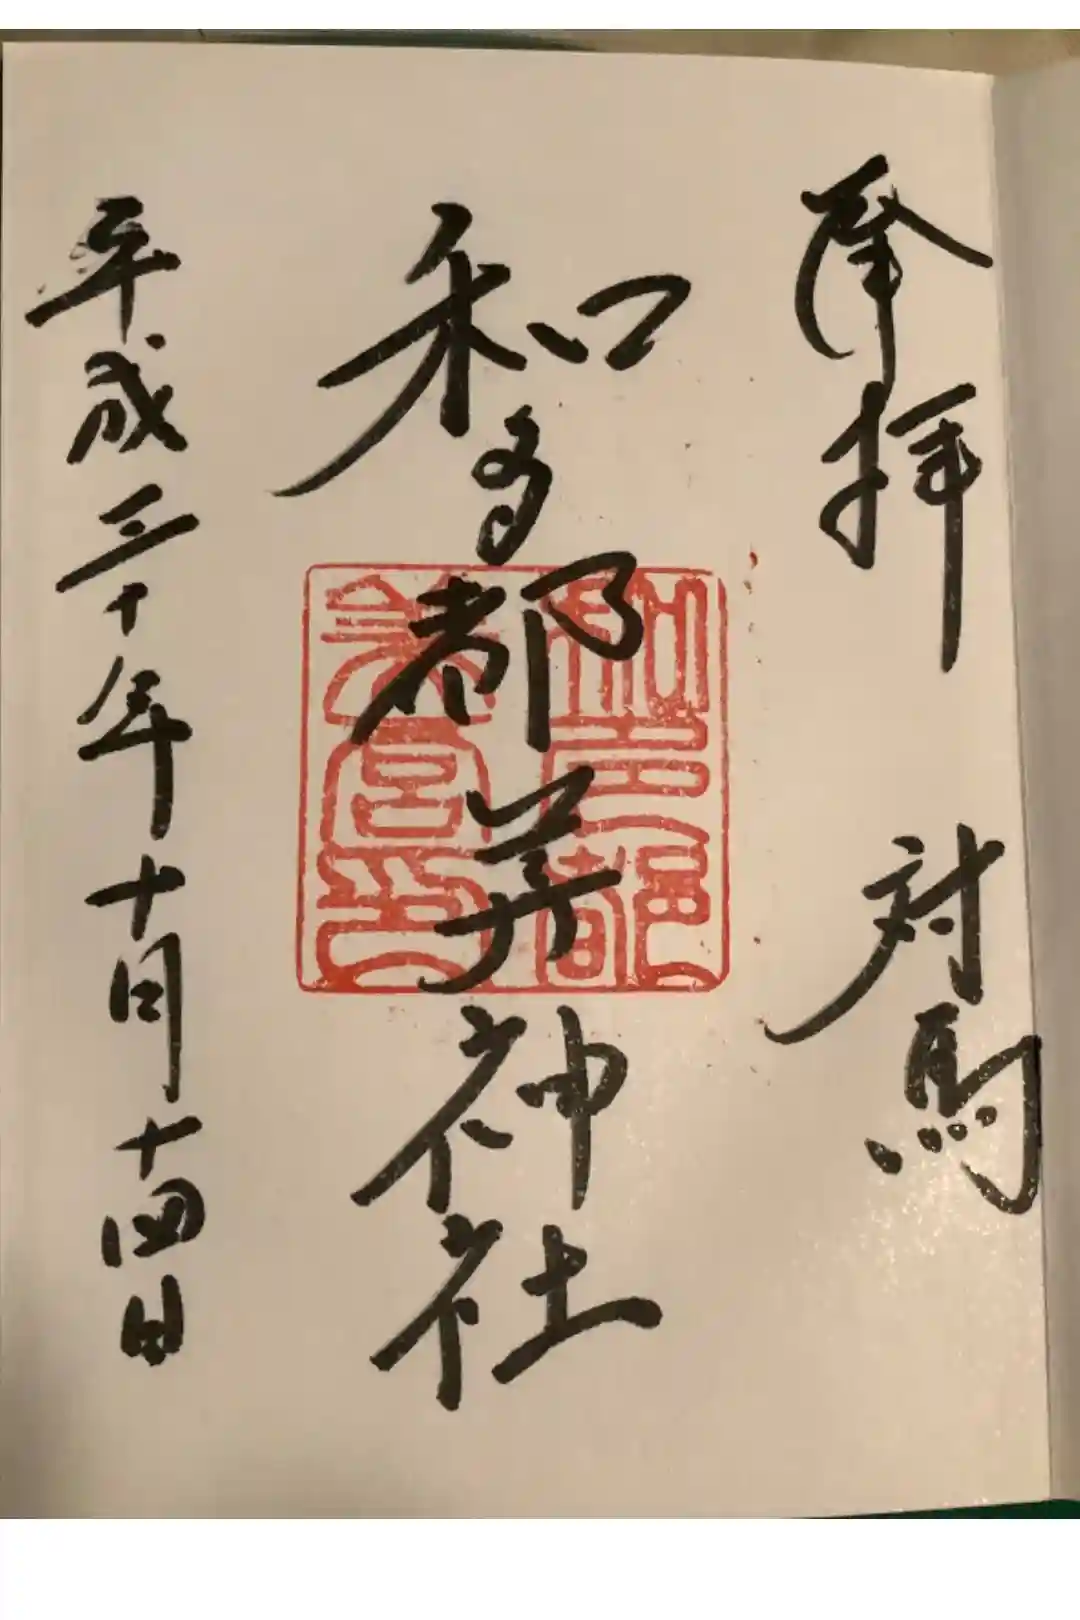 奉拝 対馬
和多都美神社
和多都美宮印
平成三十年十月十四日